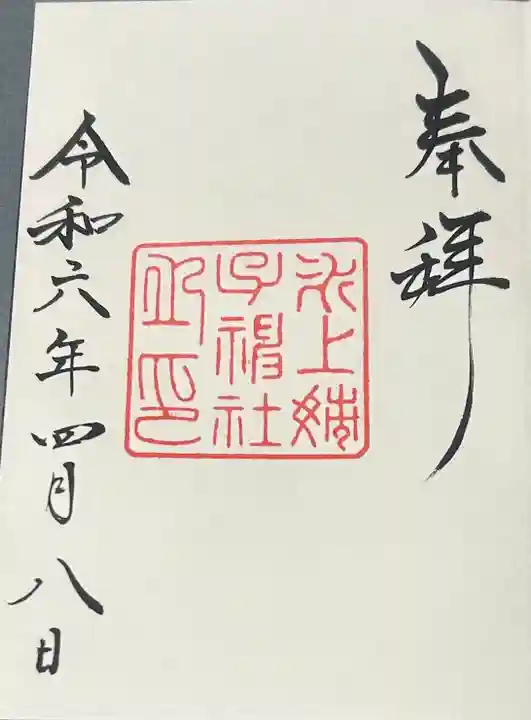 奉拝
氷上姉
子神社
之印
令和六年四月八日